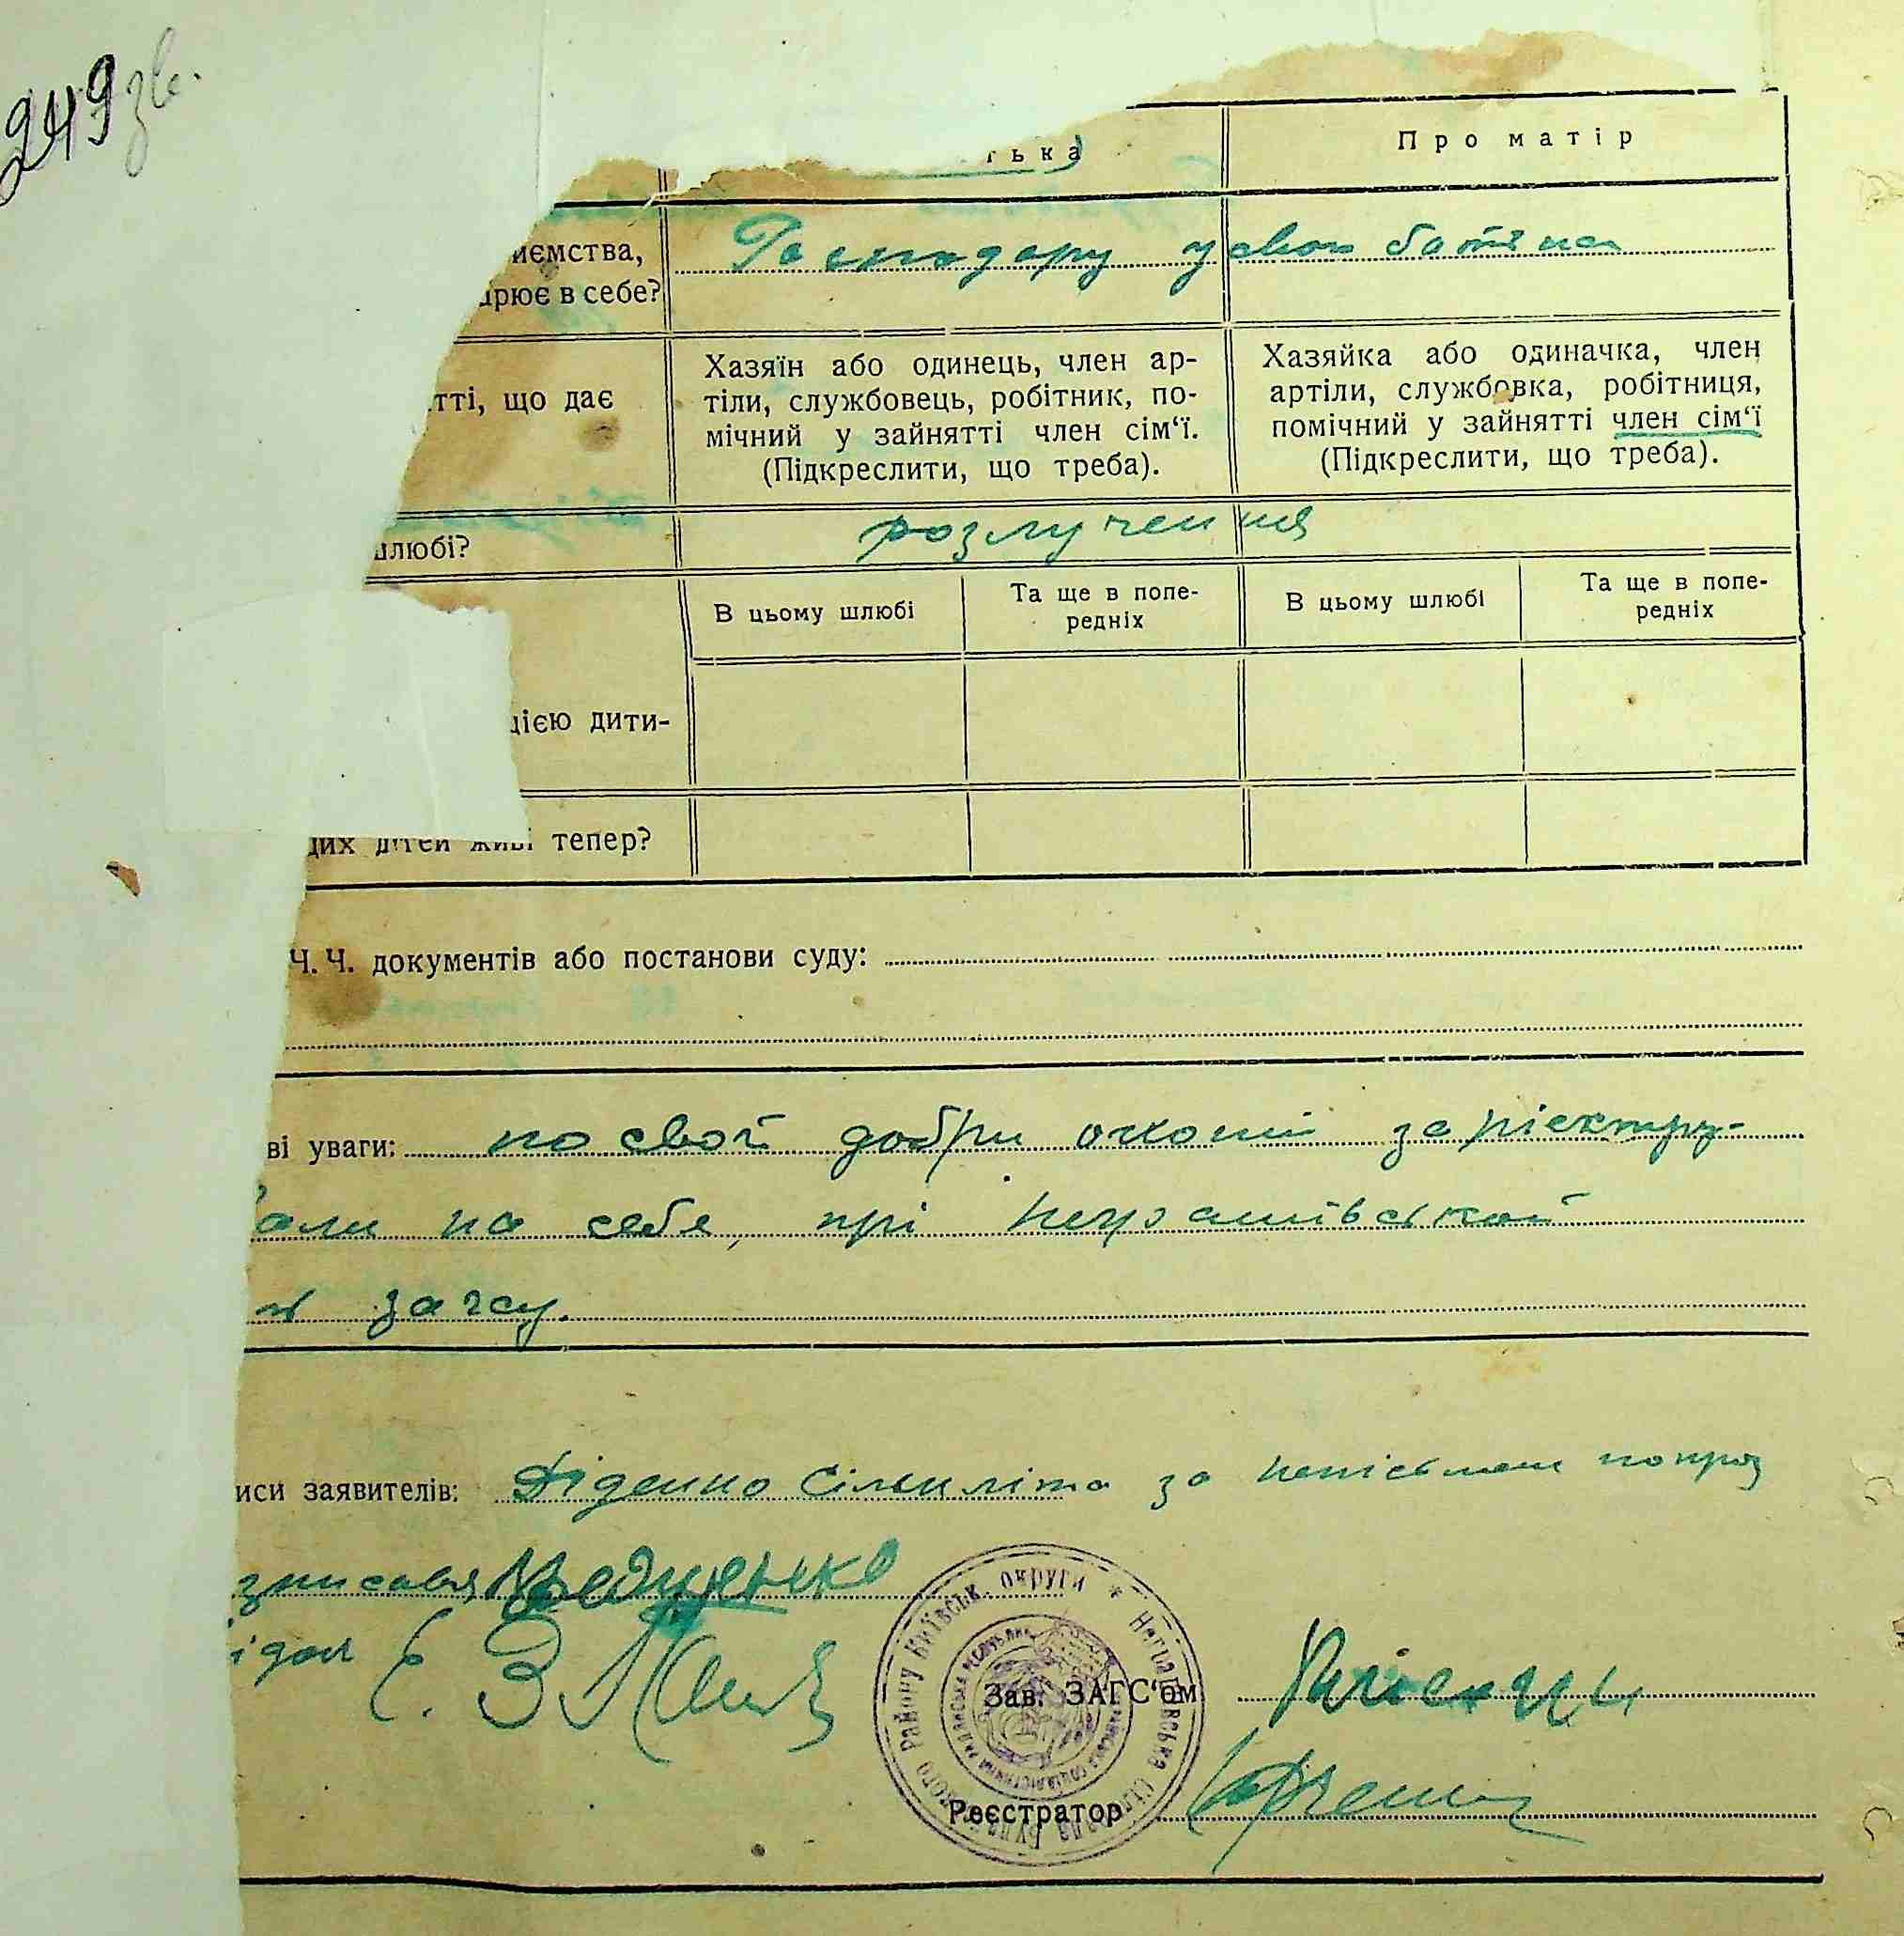 249 зв.
тька
Про матір
иємства,
арює в себе?
у свого батька
тті, що дає
Хазяїн або одинець, член ар-
тіли, службовець, робітник, по-
мічний у зайнятті член сім‘ї.
(Підкреслити, що треба).
Хазяйка або одиначка, член
артіли, службовка, робітниця,
помічний у зайнятті член сім‘ї
(Підкреслити, що треба).
шлюбі?
розлучення
В цьому шлюбі
Та ще в попе-
редніх
В цьому шлюбі
Та ще в попе-
редніх
цією дити-
цих дітей живі тепер?
Ч. Ч. документів або постанови суду:
ві уваги: по своїй добрій охоті заріестру-
вали на себе, прі
загсу.
иси заявителів: Діденко за попроз
Зав. ЗАГС‘ом
Реєстратор
району Київськ. округи * сільрада